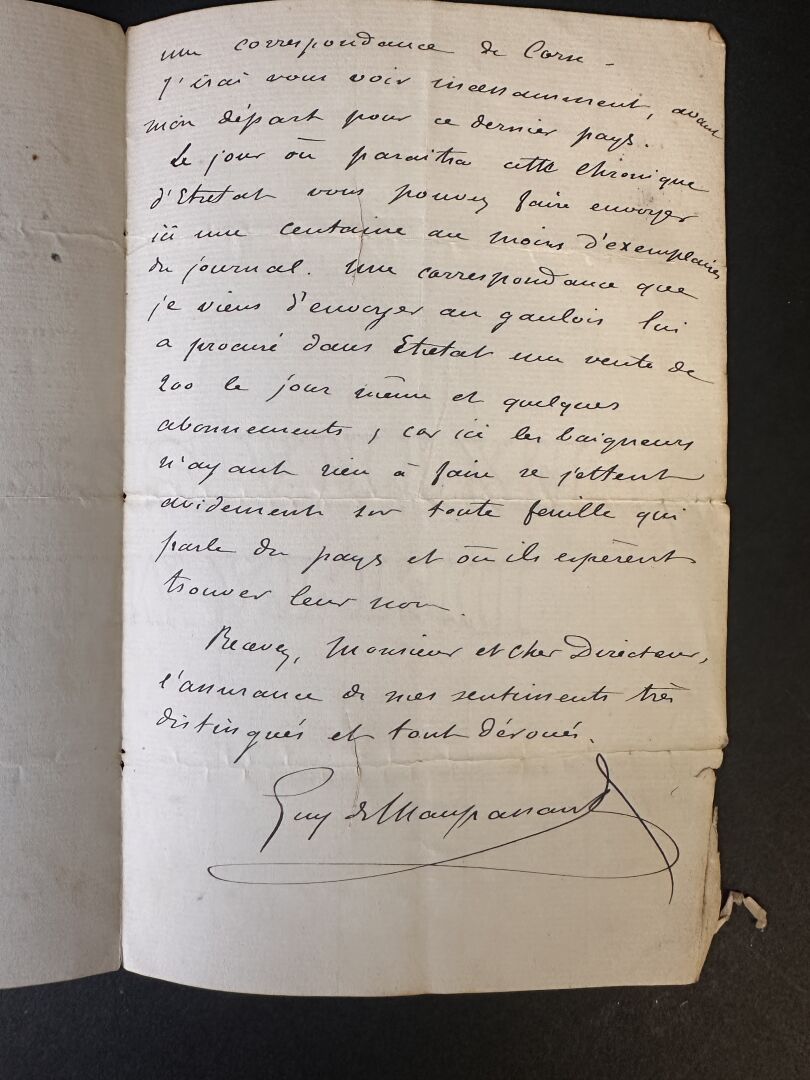 une correspondance de Corse -
J'irai vous voir incessamment, avant
mon départ pour ce dernier pays.
Le jour où paraitra cette chronique
d'Etretat vous pouvez faire envoyer
ici une centaine au moins d'exemplaires
du journal. Une correspondance que
je viens d'envoyer au gaulois lui
a procuré dans Etretat une vente de
200 le jour même et quelques
abonnements, car ici les baigneurs
n'ayant rien à faire se jettent
avidement sur toute feuille qui
parle du pays et où ils espèrent
trouver leur nom.
Recevez, Monsieur et Cher Directeur,
l'assurance de mes sentiments très
distingués et tout dévoués.
Guy de Maupassant